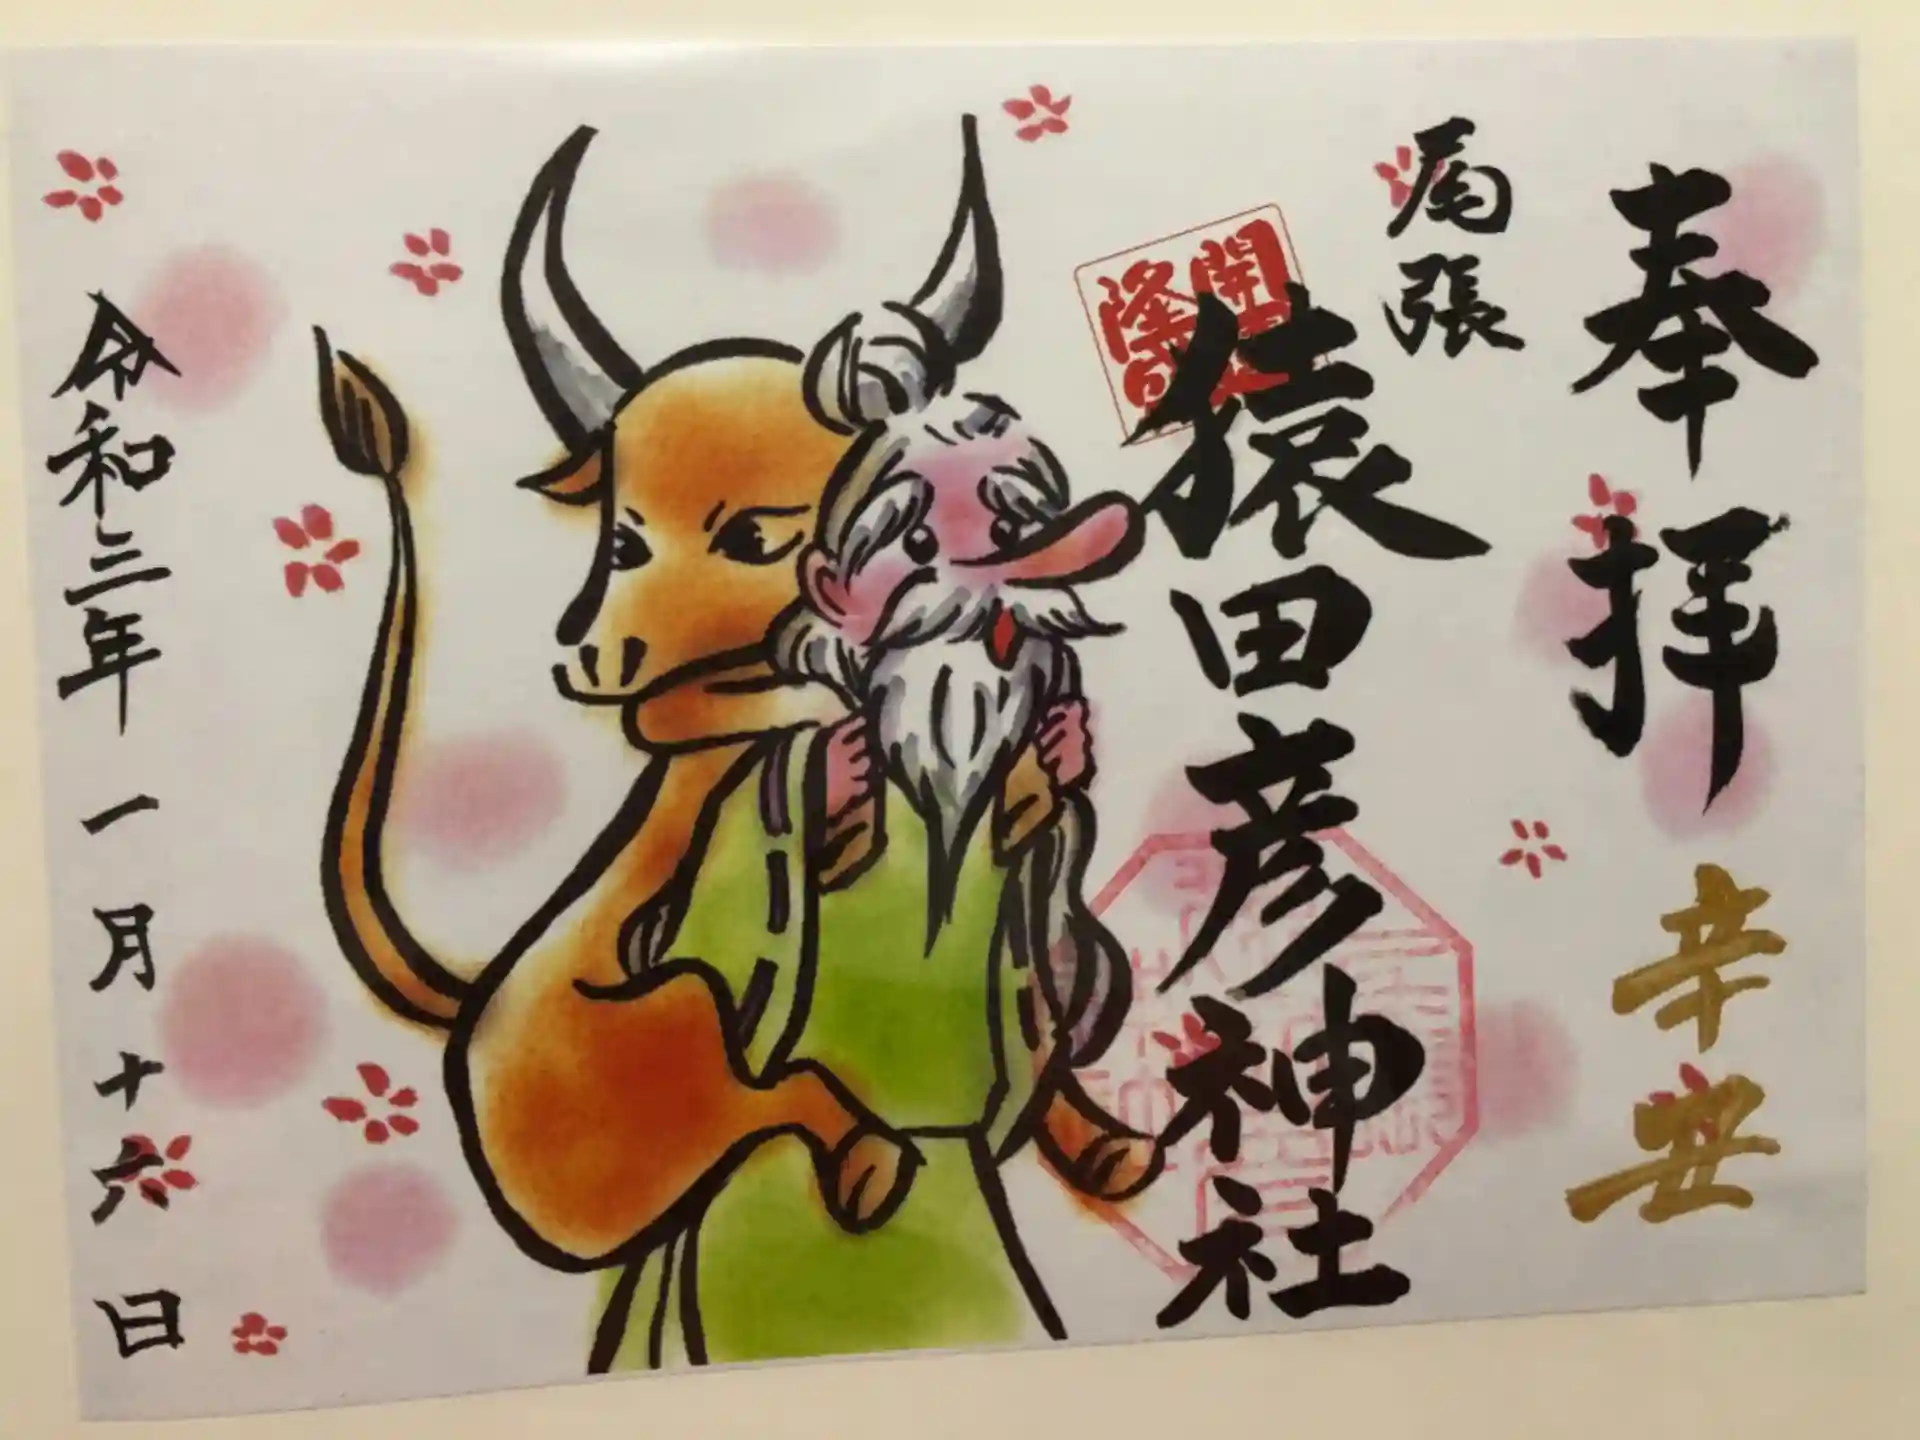 奉拝
辛安
尾張
猿田彦神社
開
隆
令和三年一月十六日